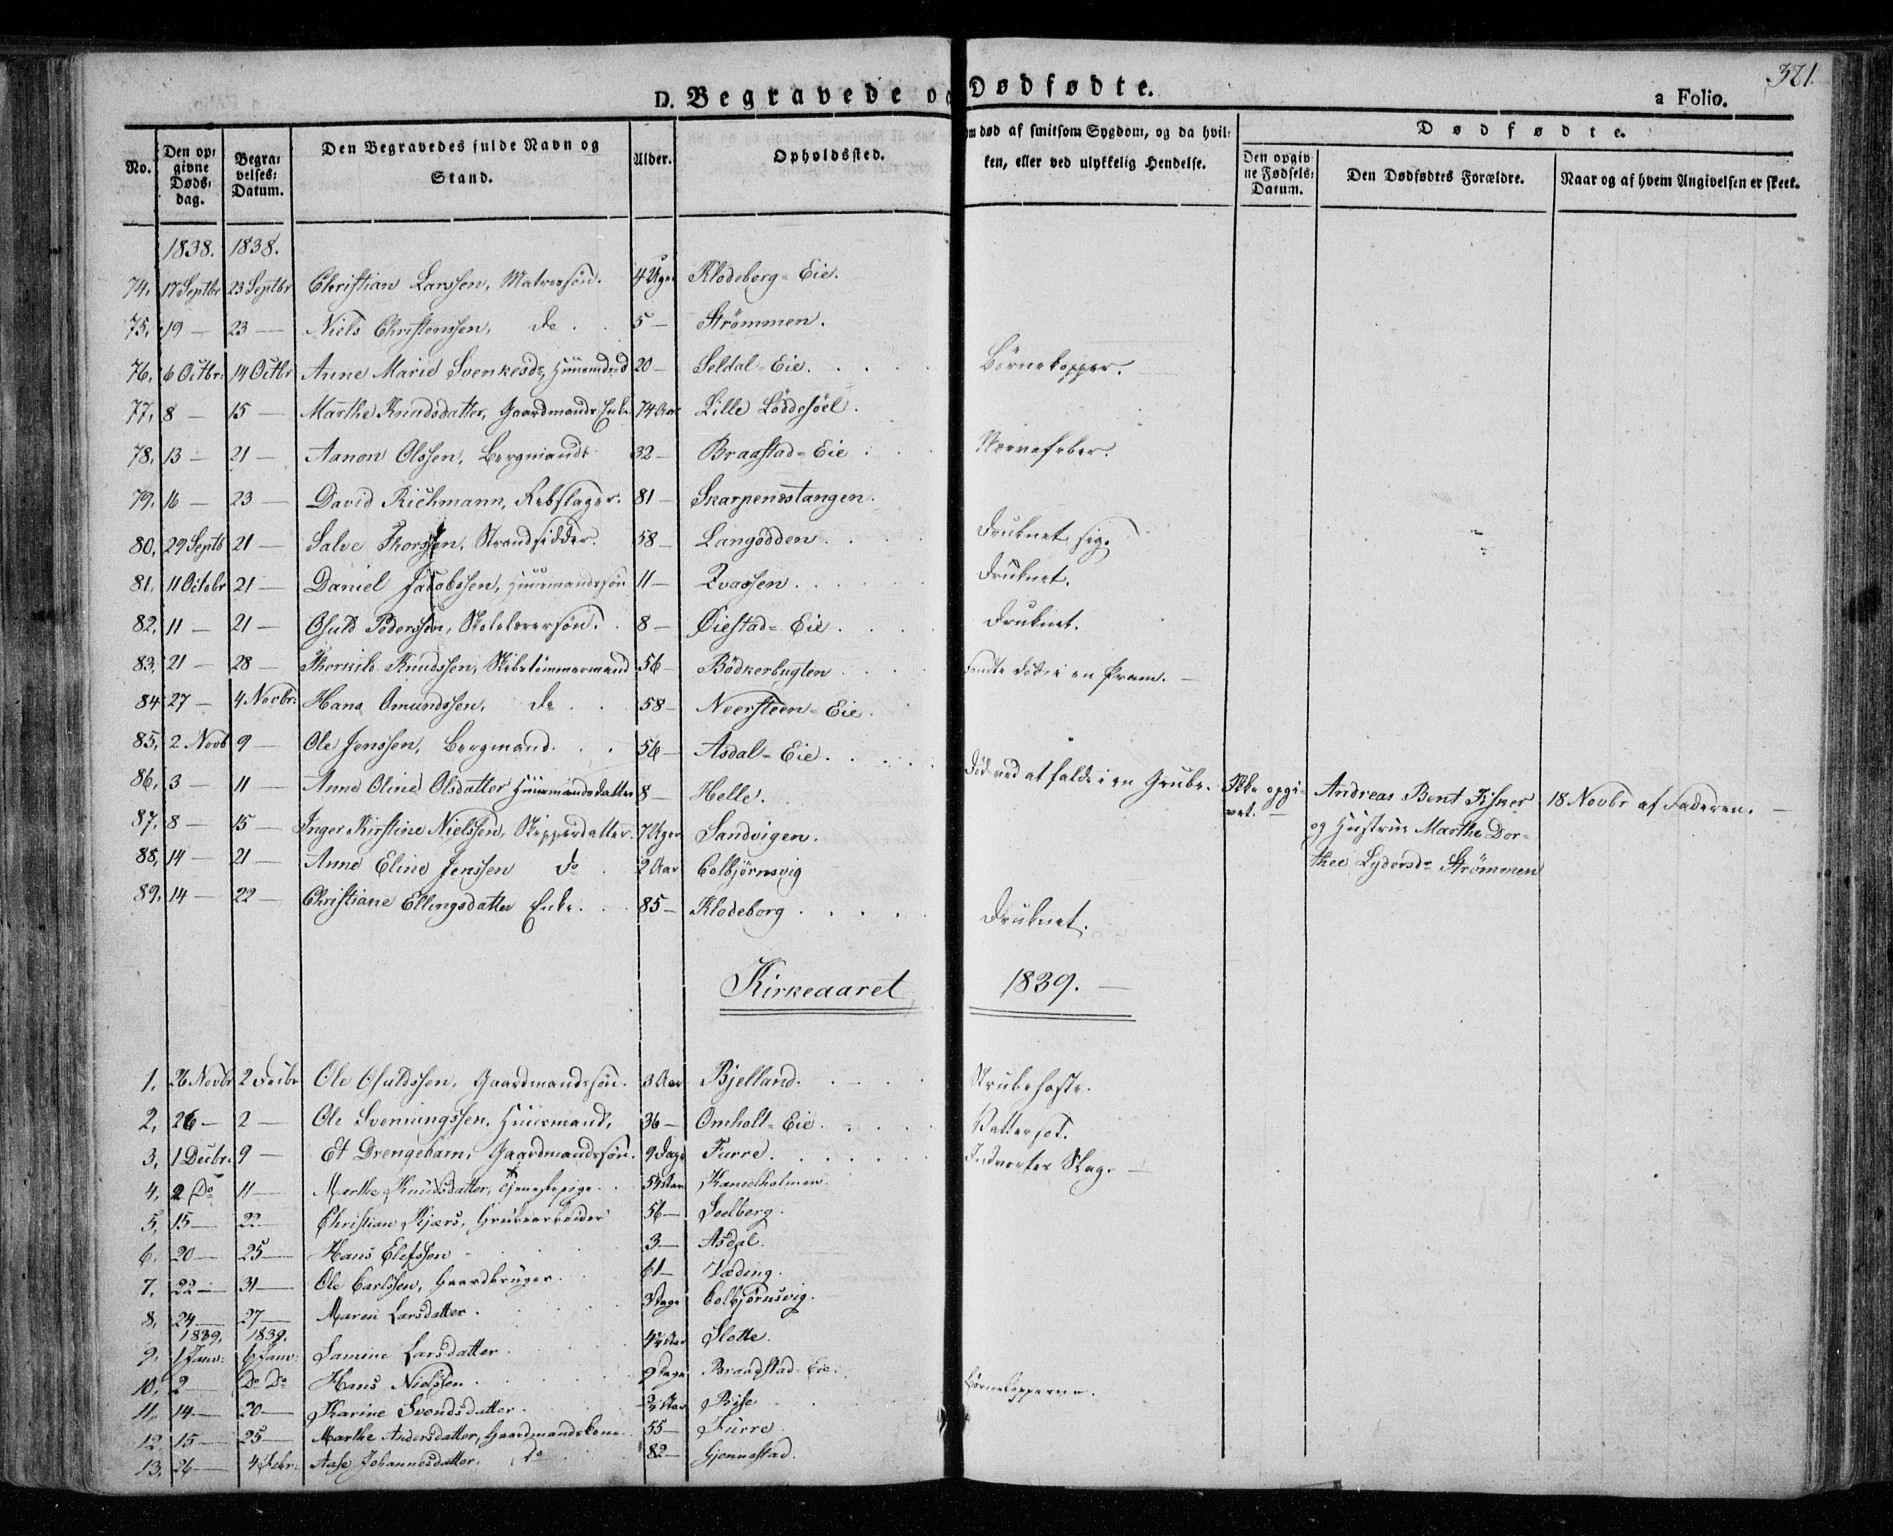 D. Begravede og Dødfødte.
321.
a Folio.
No.
Den opgivne Dødsdag.
Begravelses-Datum.
Den Begravedes fulde Navn og Stand.
Alder.
Opholdssted.
om død af smitsom Sygdom, og da hvilken, eller ved ulykkelig Hendelse.
Dødfødte.
Den opgivne Fødsels-Datum.
Den Dødfødtes Forældre.
Naar og af hvem Angivelsen er skeet.
1838. 1838.
74, 17 Septbr 23 Septbr Christian Larssen, Matrossøn. 4 Uger Klodeborg-Eie.
75, 19 — 23 — Niels Christenssen, do. 5 — Strømmen.
76, 6 Octbr: 14 Octbr Anne Marie Svenkesdr, 20 — Seldal-Eie. Børnekopper.
77, 8 — 15 — Marthe Knudsdatter, Gaardmands Enke 74 Aar Lille Løddesøel.
78, 13 — 21 — Aanon Olssen, Bergmand 32 — Braastad-Eie Nervefeber.
79, 16 — 23 — David Richmann, Rebslager. 81 — Skarpenæstangen.
80, 29 Septb 21 — Salve Thorssen, Strandsidder. 58 — Langødden. Druknet sig.
81, 11 Octobr 21 — Daniel Jacobssen, Huusmandssøn 11 — Qvassen. Druknet.
82, 11 — 21 — Osuld Pederssen, Skolelærersøn. 8 — Øiestad-Eie. Druknet.
83, 21 — 28 — Thorkild Knudssen, Skibstømmermand 56 — Bødkerbugten fandtes død i en Pram. —
84 27 — 4 Novbr: Hans Omundssen, do. 58 — Neersteen-Eie.
85, 2 Novb 9 — Ole Jenssen, Bergmand. 56 — Asdal-Eie.
86, 3 — 11 — Anne Oline Olsdatter Huusmandsdatter 8 — Helle. Død ved at falde i en Grube.
Ikke opgivet. —
Andreas Bent Fisner
og Hustrue Marthe Dor-
thee Lydersdr Strømmen
18 Novbr af Faderen. —
87, 8 — 15 — Inger Kirstine Nielssen, Skipperdatter. 7 Uger Sandvigen.
88, 14 — 21 — Anne Eline Jenssen do 2 Aar Colbjørnsvig
89, 14 — 22 — Christiane Ellingsdatter Enke. 85 — Klodeborg. Druknet.
Kirkeaaret 1839. —
1, 26 Novbr 2 Decbr Ole Osuldssen, Gaardmandssøn. 3 Aar Bjelland. Strubehoste.
2, 26 — 2 — Ole Svenningssen, Huusmand, 36 — Omholt-Eie.
3, 1 Decbr: 9 — Et Drengebarn, Gaardmandssøn. 9 Dage Furre. Indvortes Slag. —
4, 2 Do 11 — Marthe Knudsdatter, Tjenestepige. Kaneelholmen.
5, 15 — 22 — Christian Kjærs, Grubearbeider 56 — Soelberg.
6, 20 — 25 — Hans Elefssen 3 — Asdal.
7, 22 — 31 — Ole Carlssen, Gaardbruger. 61 — Væding.
8, 24 — 27 — Maren Larsdatter. 3 Dage Colbjørnsvig.
1839, 1839,
9, 1 Janv: 6 Janv: Samine Larsdatter. Slotte.
10, 2 — Do Do Hans Nielssen. 9 Dage Braastad-Eie.
11, 14 — 20 — Karine Svendsdatter. Rise Børnekopperne.
12, 15 — 25 — Marthe Andersdatter, Gaardmandskone. 55 — Furre.
13, 26 — 4 Febr: Aase Johannesdatter, Do 82 — Gjennestad.